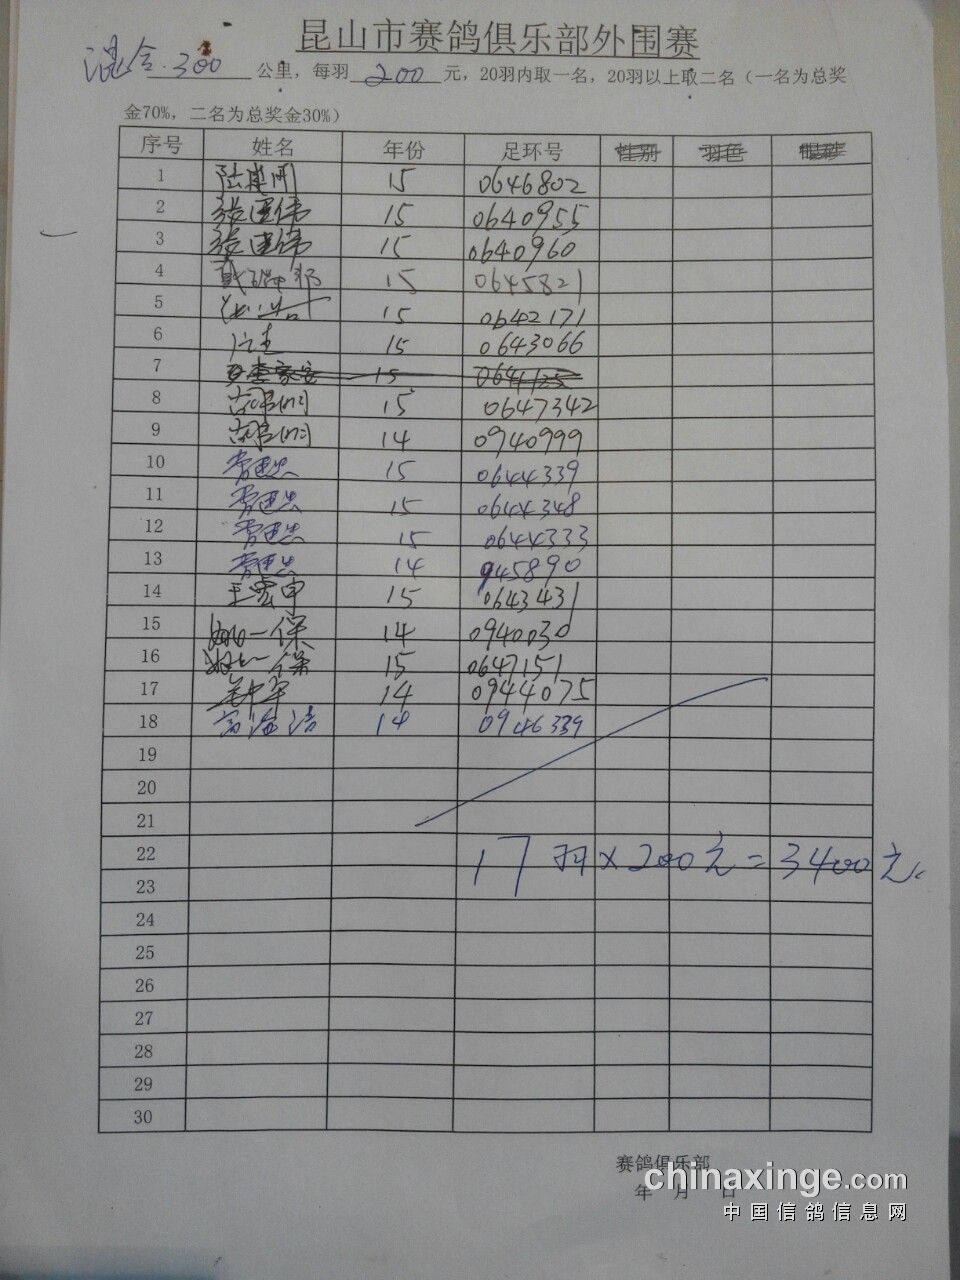 昆山市赛鸽俱乐部外围赛
混合.300 公里，每羽 200 元，20羽内取一名，20羽以上取二名（一名为总奖
金70%，二名为总奖金30%）
序号 姓名 年份 足环号 性别 羽色 眼砂
1 15 0646802
2 张建伟 15 0640955
3 张建伟 15 0640960
4 15 0645821
5 15 0642171
6 15 0643066
7 15 0641125
8 15 0647342
9 14 0940999
10 15 0644339
11 15 0644348
12 15 0644333
13 14 945890
14 15 0643431
15 一保 14 0940030
16 一保 15 0647151
17 14 0944075
18 14 0946339
19
20
21
22
17羽×200元=3400元
23
24
25
26
27
28
29
30
赛鸽俱乐部
年 月 日
chinaxinge.com
中国信鸽信息网